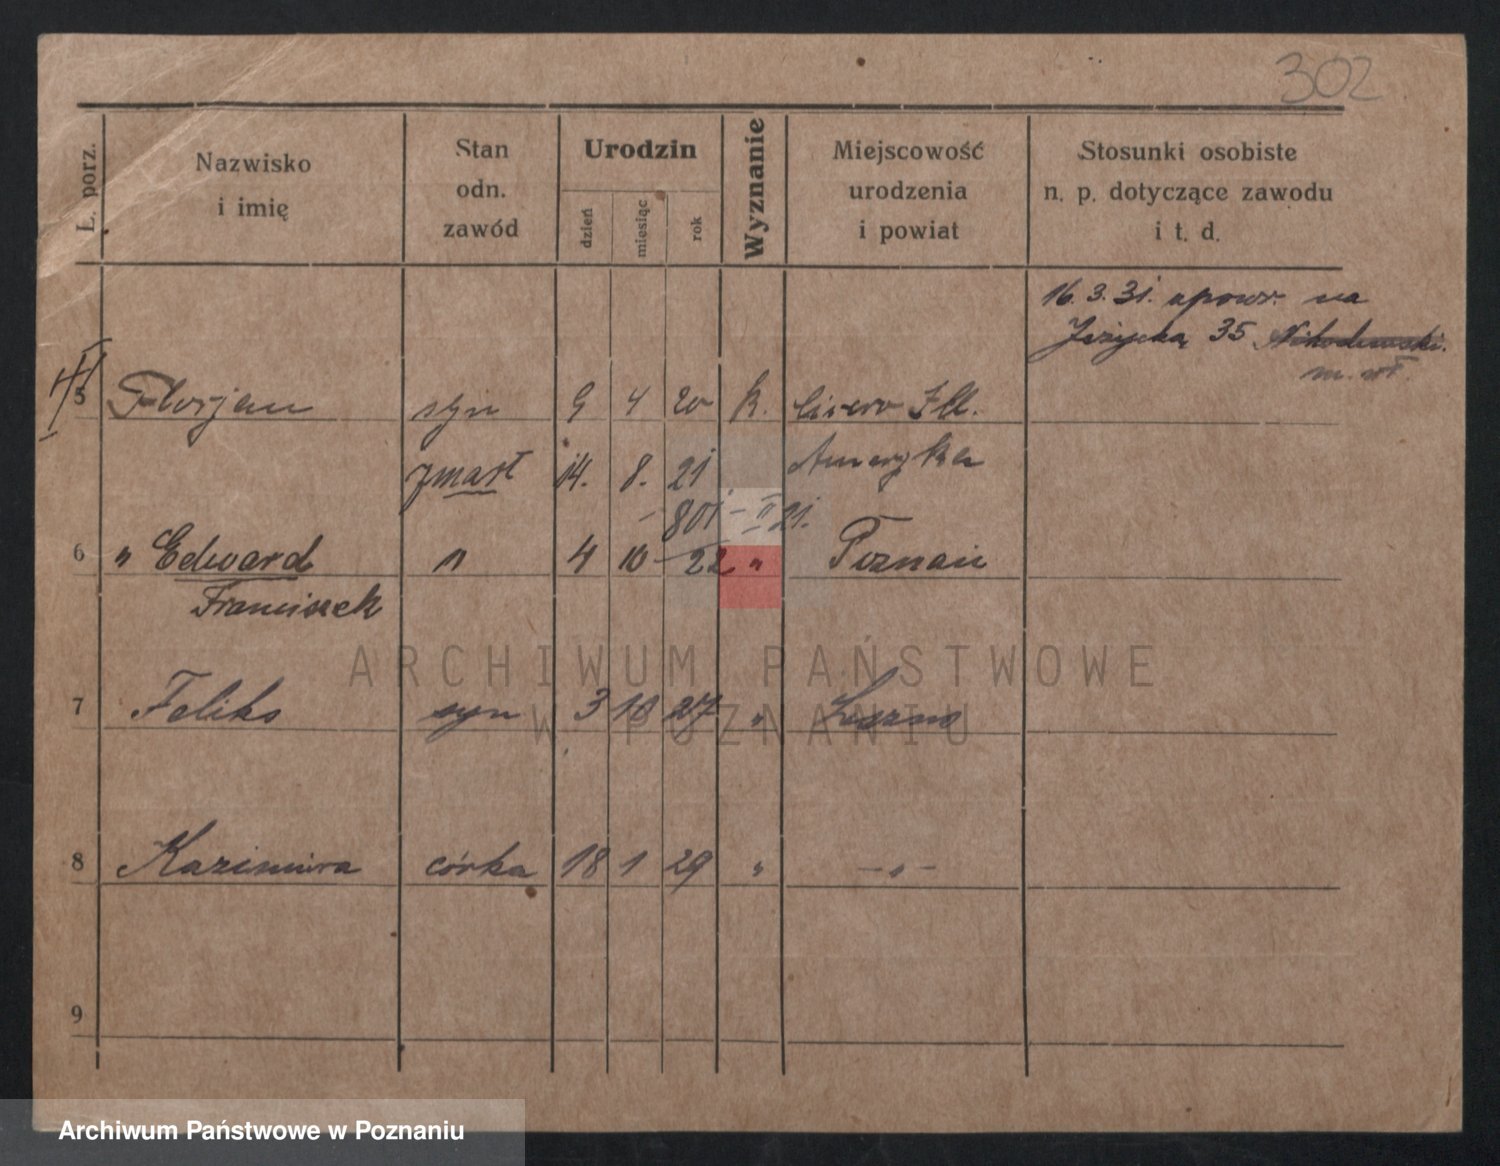 302
L. porz.
Nazwisko
i imię
Stan
odn.
zawód
Urodzin
dzień
miesiąc
rok
Wyznanie
Miejscowość
urodzenia
i powiat
Stosunki osobiste
n. p. dotyczące zawodu
i t. d.
16. 3. 31. upow. na
Jeżycką 35
5 Florjan syn 9 4 20 k. Cicero Ill.
zmarł 14. 8. 21 Ameryka
801 - II 21.
6 " Edward " 4 10 22 " Poznań
Franciszek
7 Feliks syn 3 10 27 " Leszno
8 Kazimira córka 18 1 29 " - " -
9
ARCHIWUM PAŃSTWOWE
W POZNANIU
Archiwum Państwowe w Poznaniu